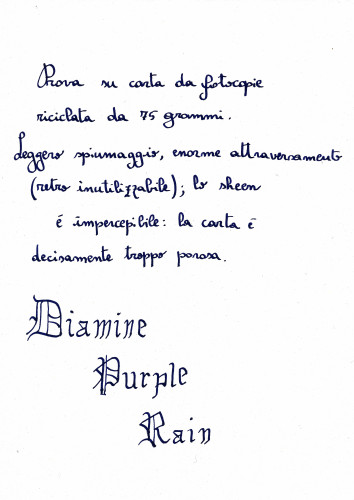 Prova su carta da fotocopie
riciclata da 75 grammi.
Leggero spiumaggio, enorme attraversamento
(retro inutilizzabile); lo sheen
é impercepibile: la carta é
decisamente troppo porosa.
Diamine
Purple
Rain